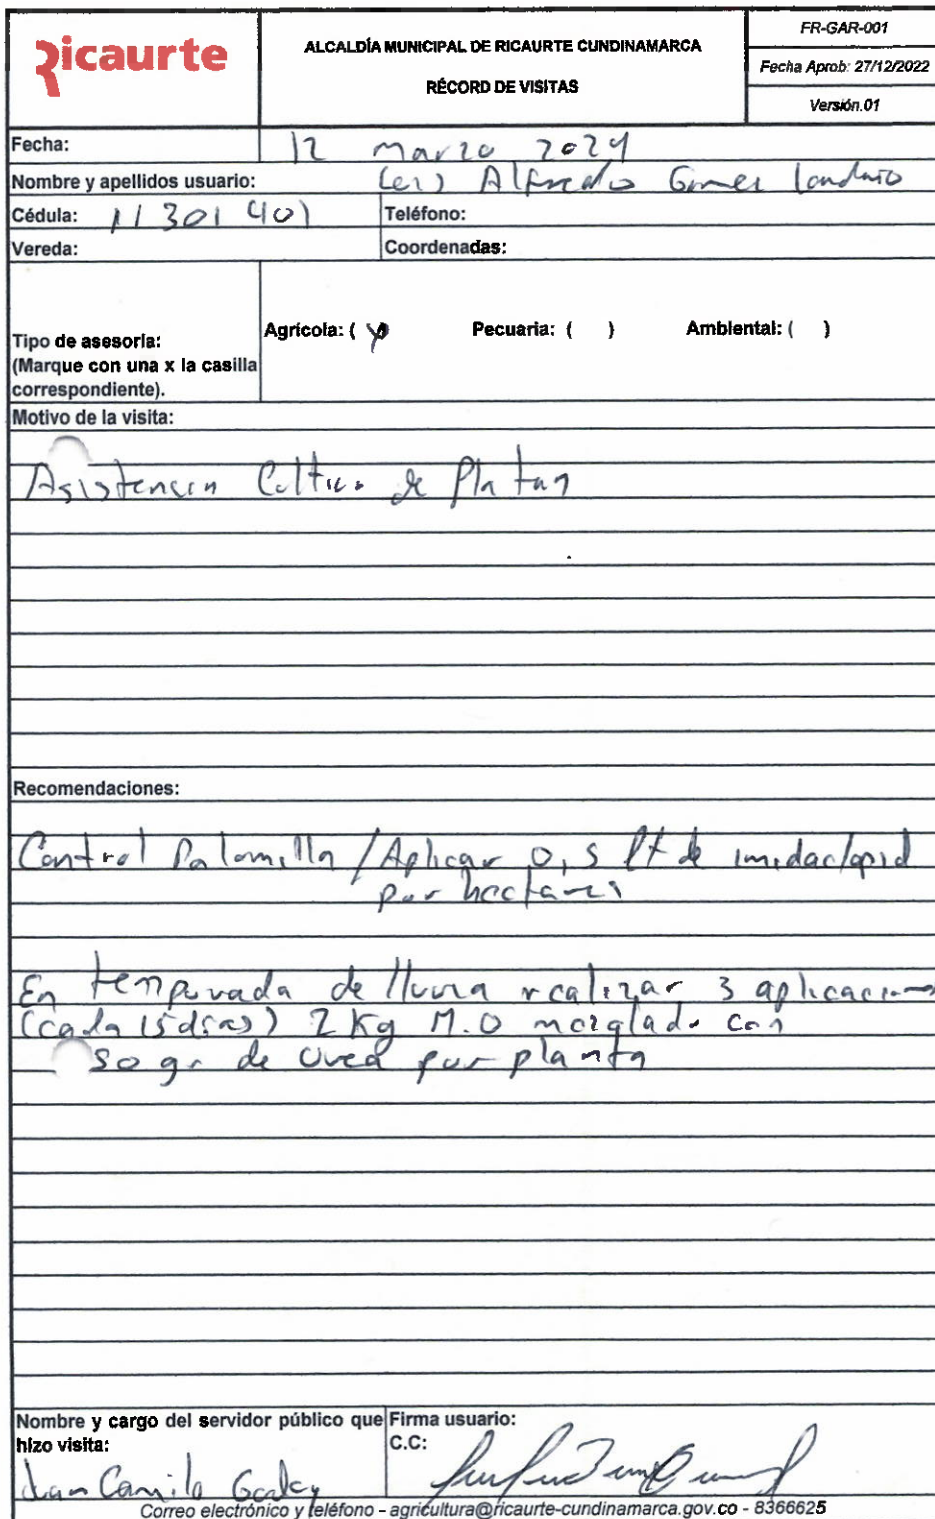 Ricaurte
ALCALDÍA MUNICIPAL DE RICAURTE CUNDINAMARCA
RÉCORD DE VISITAS
FR-GAR-001
Fecha Aprob: 27/12/2022
Versión.01
Fecha: 12 Marzo 2024
Nombre y apellidos usuario: Alfredo Gomez
Cédula: 11301401 Teléfono:
Vereda: Coordenadas:
Tipo de asesoría:
(Marque con una x la casilla
correspondiente).
Agrícola: ( x ) Pecuaria: ( ) Ambiental: ( )
Motivo de la visita:
Asistencia Cultivo de Platan
Recomendaciones:
Control Palomilla / Aplicar 0,5 lt de imidacloprid
por hectarea
En temporada de lluvia realizar 3 aplicaciones
(cada 15 dias) 2 Kg M.O mezclado con
50 gr de Urea por planta
Nombre y cargo del servidor público que
hizo visita:
Juan Camilo
Firma usuario:
C.C:
Correo electrónico y teléfono - agricultura@ricaurte-cundinamarca.gov.co - 8366625